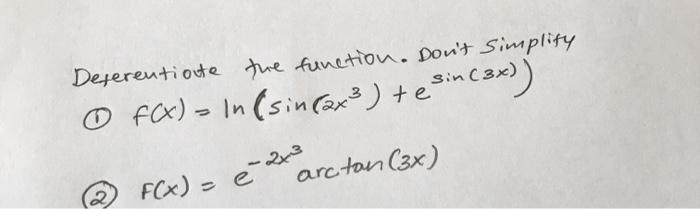 Deferentiote the function. Don't simplify
① f(x) = ln(sin(2x³) + e^sin(3x))
② F(x) = e^-2x³ arctan(3x)